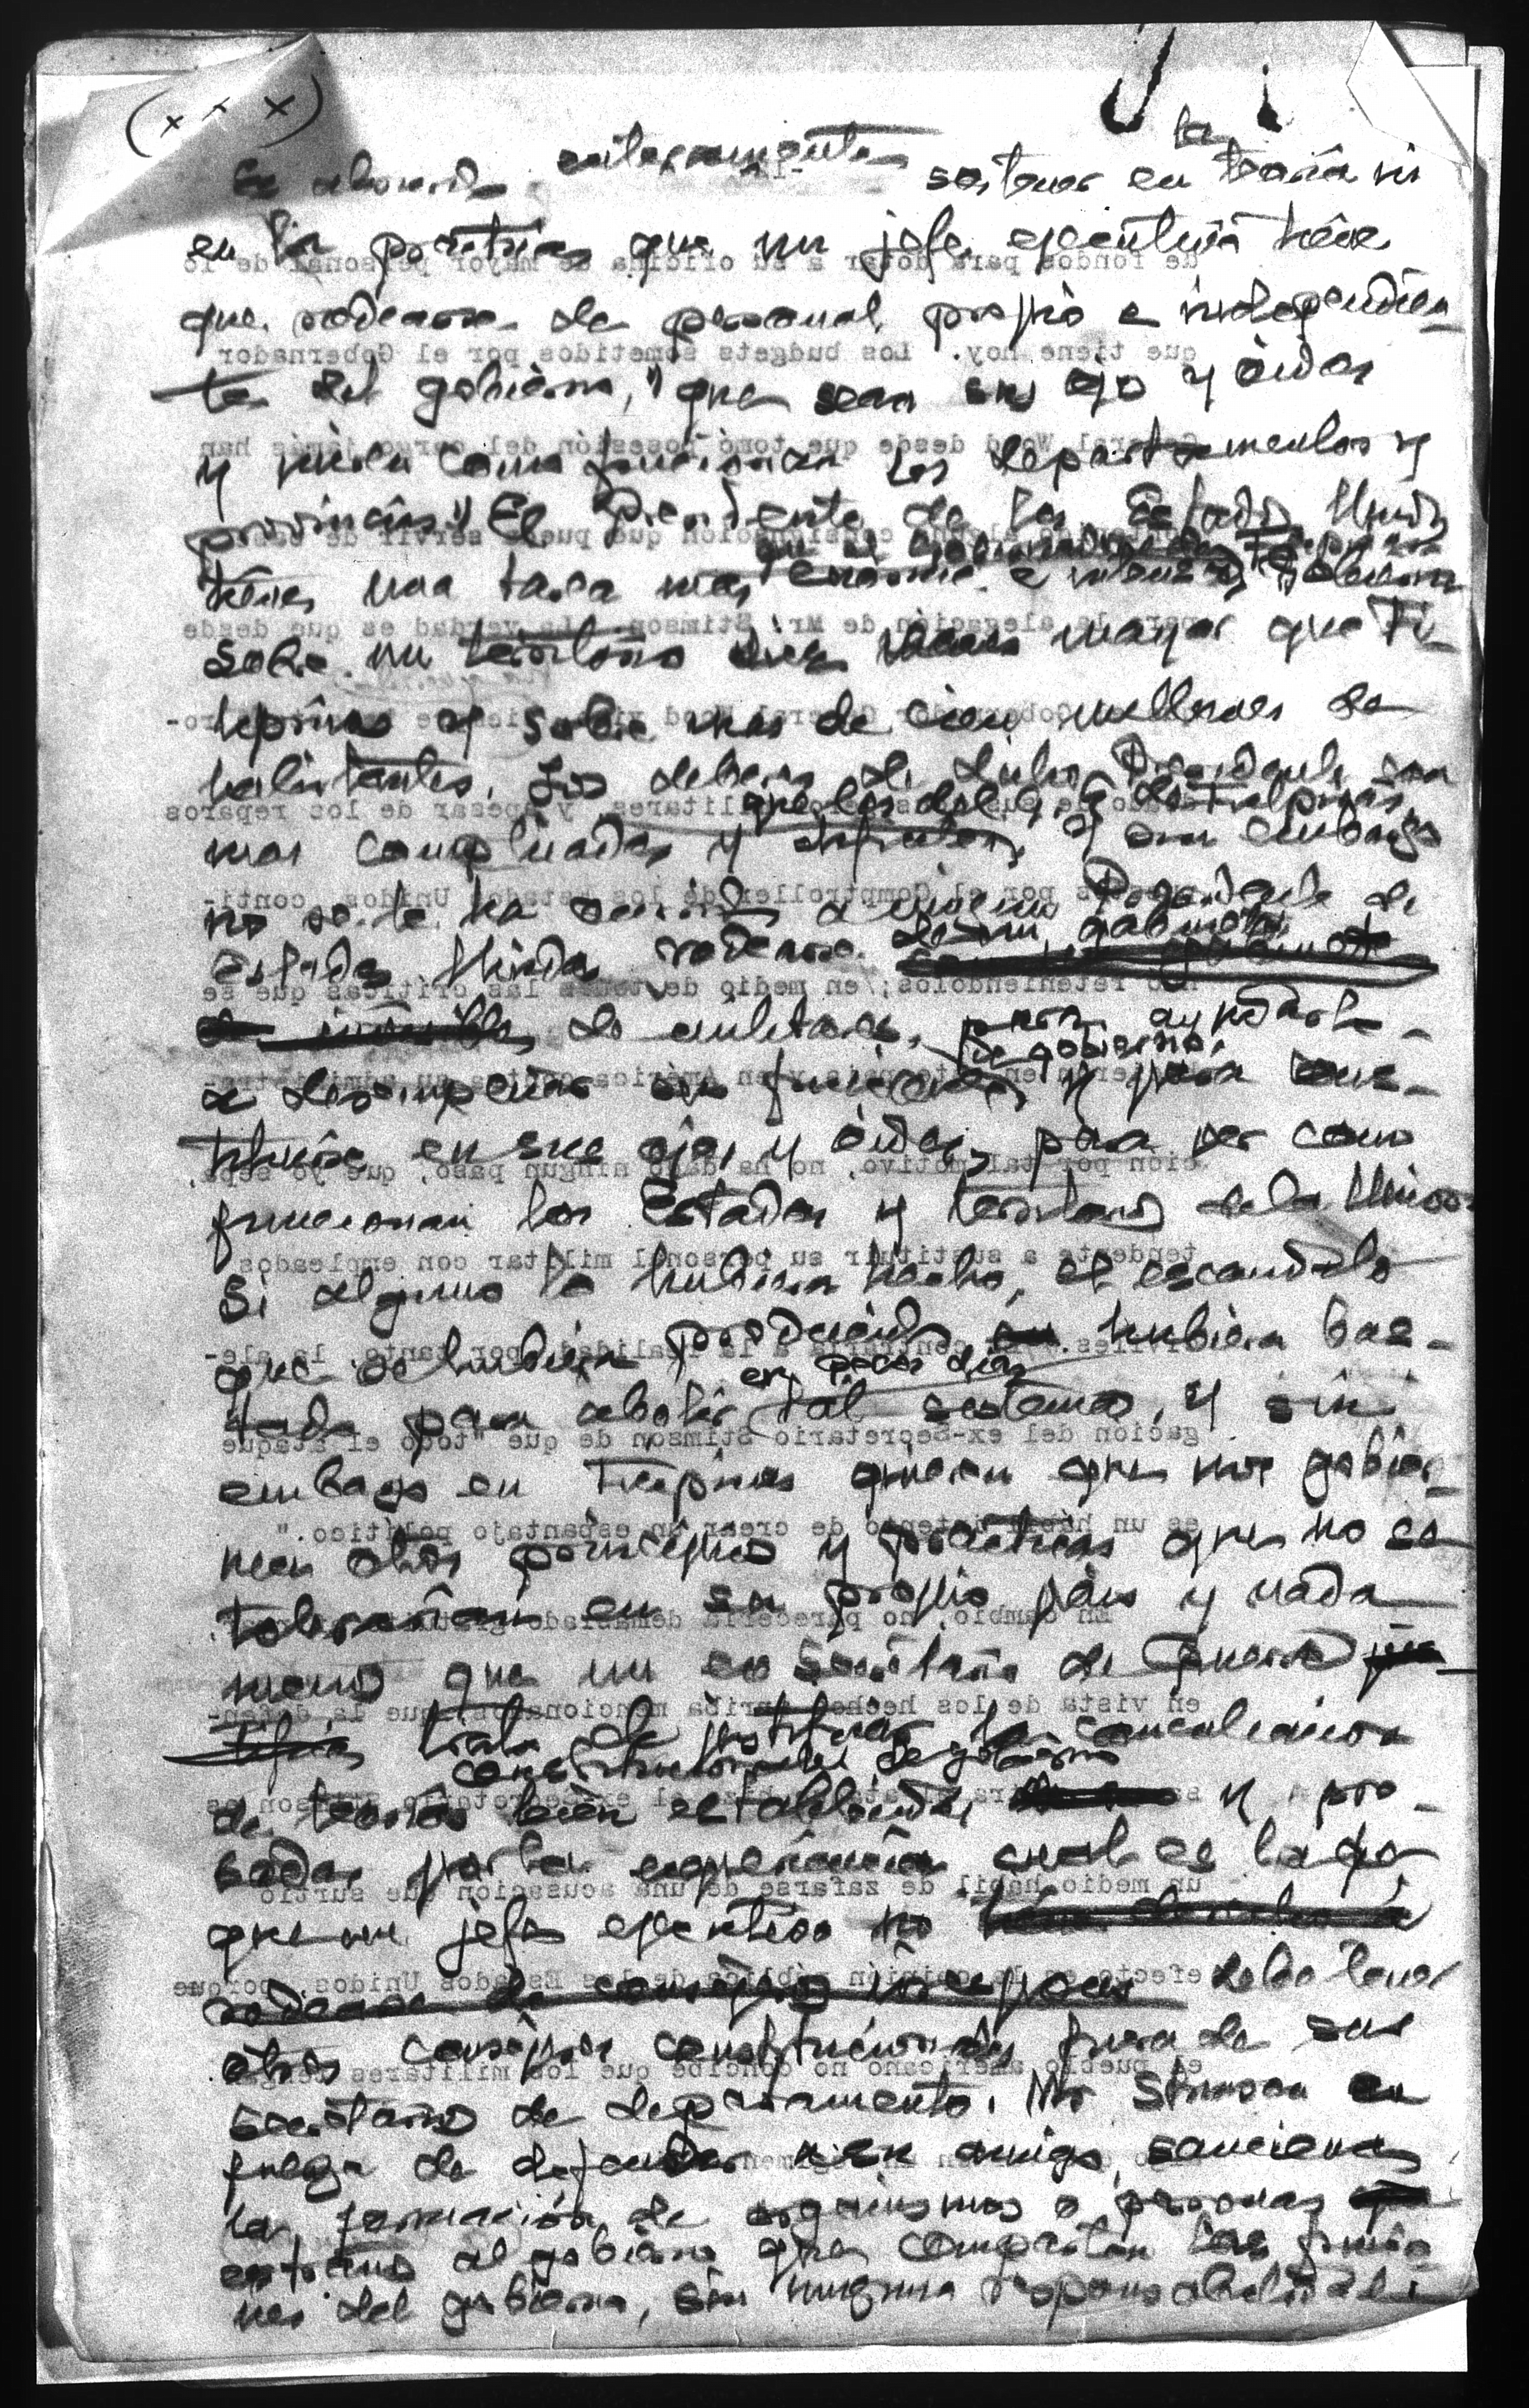 (x x x)
Es absurdo enteramente sostener en la teoria ni
en la practica que un jefe ejecutivo tiene
que rodearse de personal propio e independien-
te del gobierno, "que sean sus ojo y oidos
y vieran como funcionan los departamentos y
provincias." El Presidente de los Estados Unidos
que el Gobernador de Filipinas
tiene una tarea mas enorme e intensa,
sobre un territorio mayor que Fi-
lipinas y sobre mas de cien millones de
habitantes. Los deberes de dicho Presidente son
que los del G. G. de Filipinas,
mas complicados y dificiles, y sin embargo
no se le ha ocurrido a ningun Presidente de
Estados Unidos rodearse de un gabinete
de militares, para ayudarle
de gobierno,
a desempeñar sus funciones y para cons-
tituirse en sus ojos y oidos, para ver como
funcionan los Estados y territorios de la Union
Si alguno lo hubiera hecho, el escandalo
que se hubiera producido hubiera bas-
en pocos dias
tado para abolir tal sistema, y sin
embargo en Filipinas quieren que nos gobier-
nen otros principios y practicas que no se
tolerarian en su propio pais y nada
menos que un ex Secretario de Guerra
trata de justificar la conculcacion
constitucionales de gobierno
de teorias bien establecidas y pro-
badas por la experiencia cual es la de
que un jefe ejecutivo no
debe tener
otros consejeros constitucionales fuera de sus
secretarios de departamento. Mr Stimson en
fuerza de defender a su amigo, sanciona
la formacion de organismos o personas
extraños al gobierno que compartan las funcio-
nes del gobierno, sin ninguna responsabilidad
de fondos para dotar a su oficina de mayor personal de lo
que tiene hoy. Los budgets sometidos por el Gobernador
General Wood desde que tomó posesión del cargo jamás han
consignación que pueda servir de base
para la alegación de Mr. Stimson. La verdad es que desde
y apesar de los reparos
por el Comptroller de los Estados Unidos, conti-
nuó reteniendolos; en medio de todas las críticas que se
ción por tal motivo, no ha dado ningun paso, que yo sepa,
tendente a sustituir su personal militar con empleados
civiles. Es contraria a la realidad, por tanto, la ale-
gación del ex-Secretario Stimson de que "todo el ataque
es un hábil intento de crear un espantajo político."
En cambio, no parecería demasiado
en vista de los hechos arriba mencionados, que la defen-
un medio hábil de zafarse de una acusación que surtió
efecto en la opinión pública de los Estados Unidos, porque
el pueblo americano no concibe que los militares